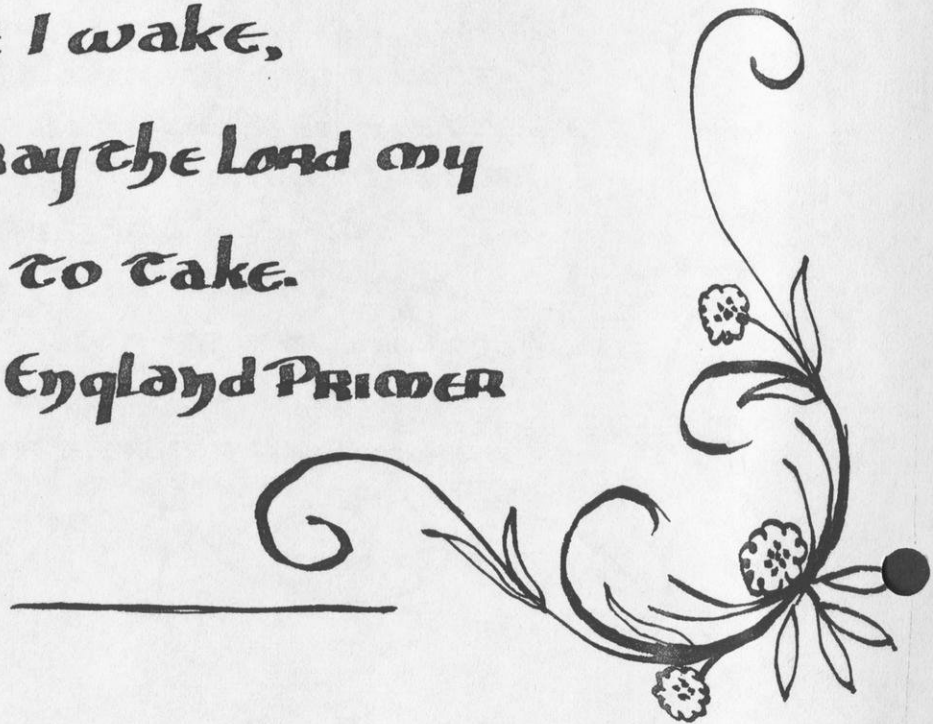 I wake,
ay the Lord my
to take.
England Primer